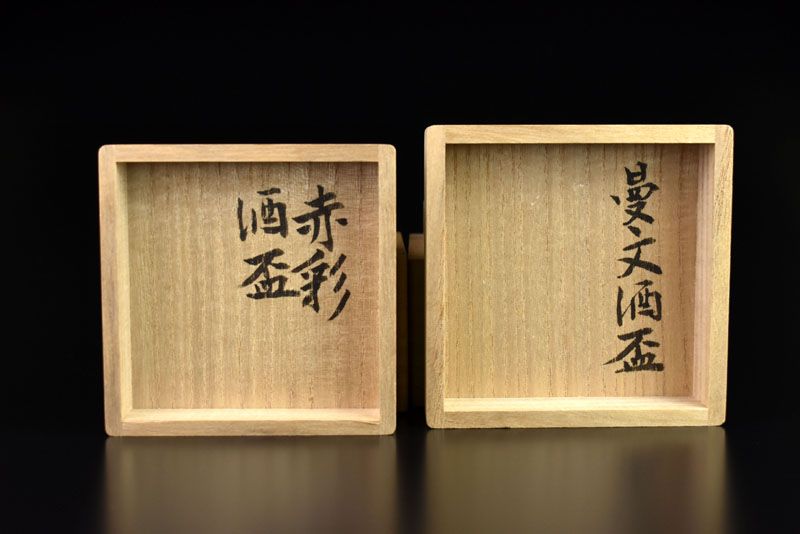 赤彩
酒盃
曼文酒盃